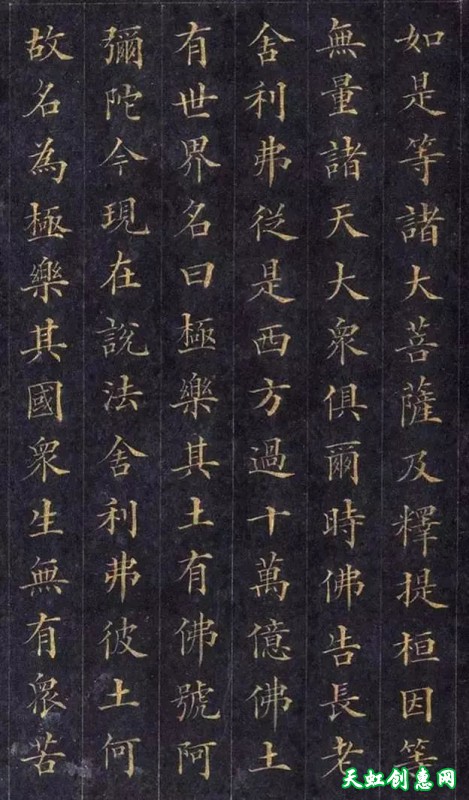 如是等諸大菩薩及釋提桓因等
無量諸天大衆俱爾時佛告長老
舍利弗從是西方過十萬億佛土
有世界名曰極樂其土有佛號阿
彌陀今現在說法舍利弗彼土何
故名為極樂其國衆生無有衆苦
天虹创惠网